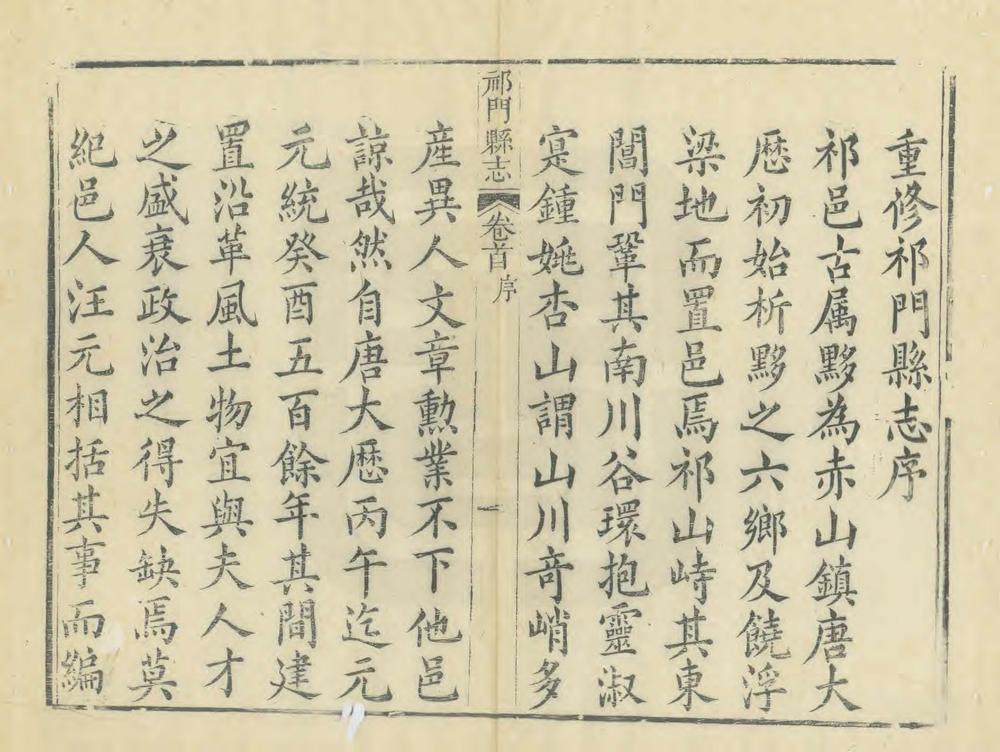 重修祁門縣志序
祁邑古属黟為赤山鎮唐大
厯初始析黟之六鄉及饒浮
梁地而置邑焉祁山峙其東
閶門鞏其南川谷環抱靈淑
寔鍾姚杏山謂山川竒峭多
祁門縣志 卷首 序 一
産異人文章勲業不下他邑
諒哉然自唐大厯丙午迄元
元統癸酉五百餘年其間建
置沿革風土物宜與夫人才
之盛衰政治之得失缺焉莫
紀邑人汪元相括其事而編